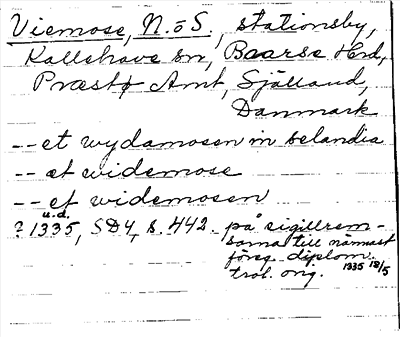 Viemose, N. o S., stationsby,
Kallehave sn, Baarse Hrd,
Præstø Amt, Sjölland,
Danmark
-- et wydamosen in selandia
-- et widemose
-- et widemosen
u.d.
? 1335, SD4, s. 442 - på sigillrem-
sorna till närmast
föreg. diplom.
trol. orig. 1335 18/5